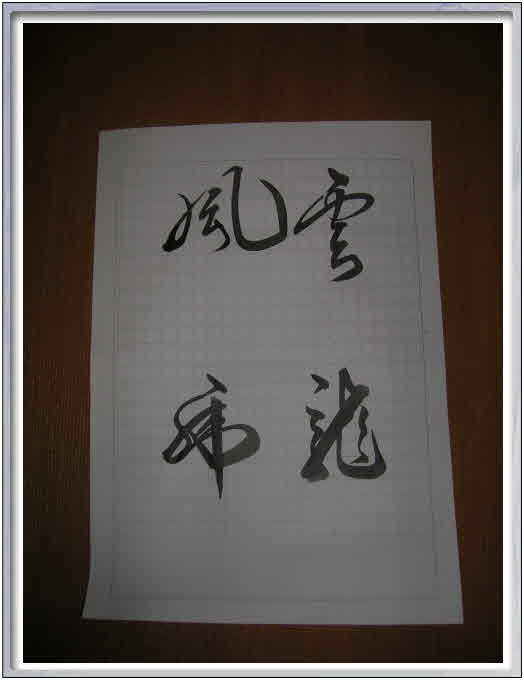 雲龍
風虎